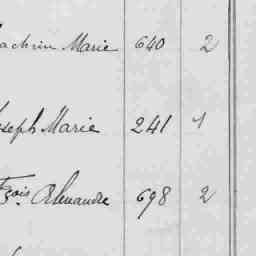 Marie 640 2
Joseph Marie 241 1
Fçois Alexandre 698 2